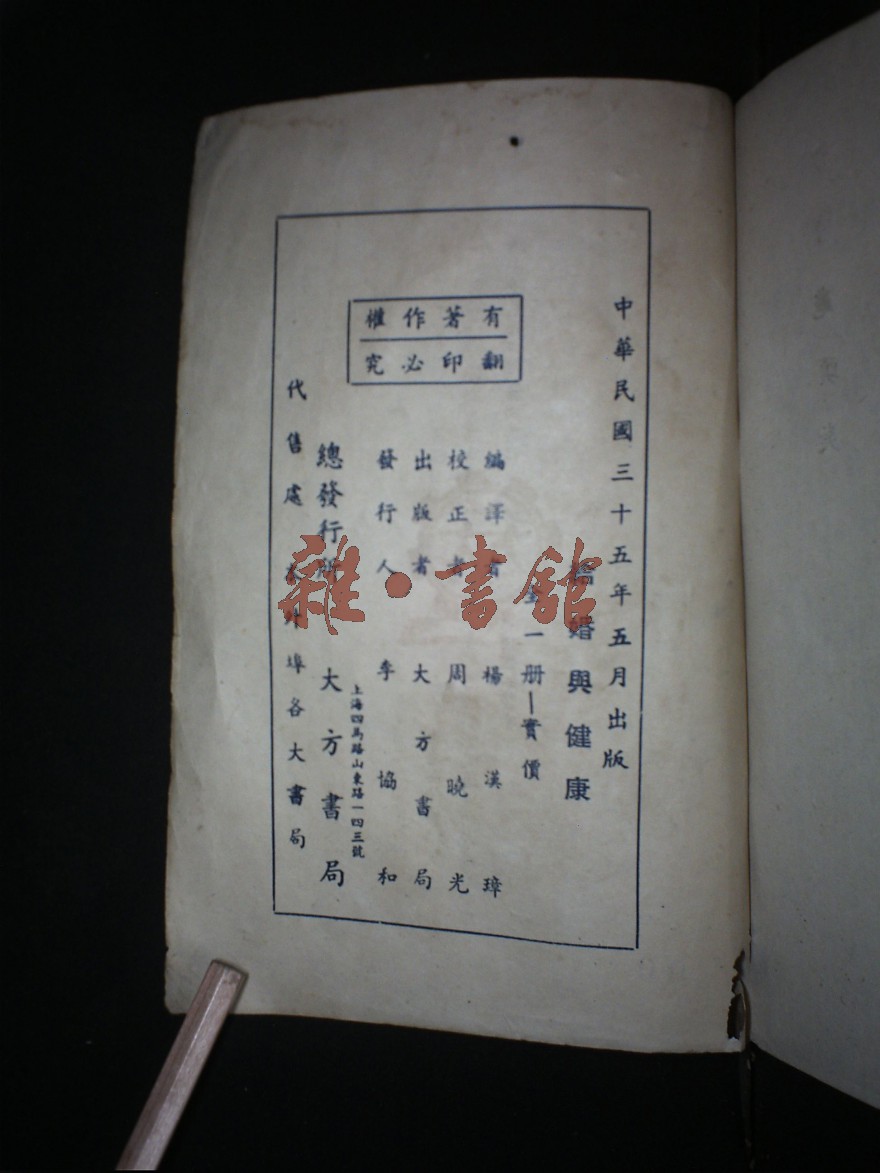 中華民國三十五年五月出版
婚與健康
全一册—實價
編譯者 楊漢璋
校正者 周曉光
出版者 大方書局
發行人 李協和
上海四馬路山東路一四三號
總發行所 大方書局
代售處 外埠各大書局
有著作權
翻印必究
雜·書館